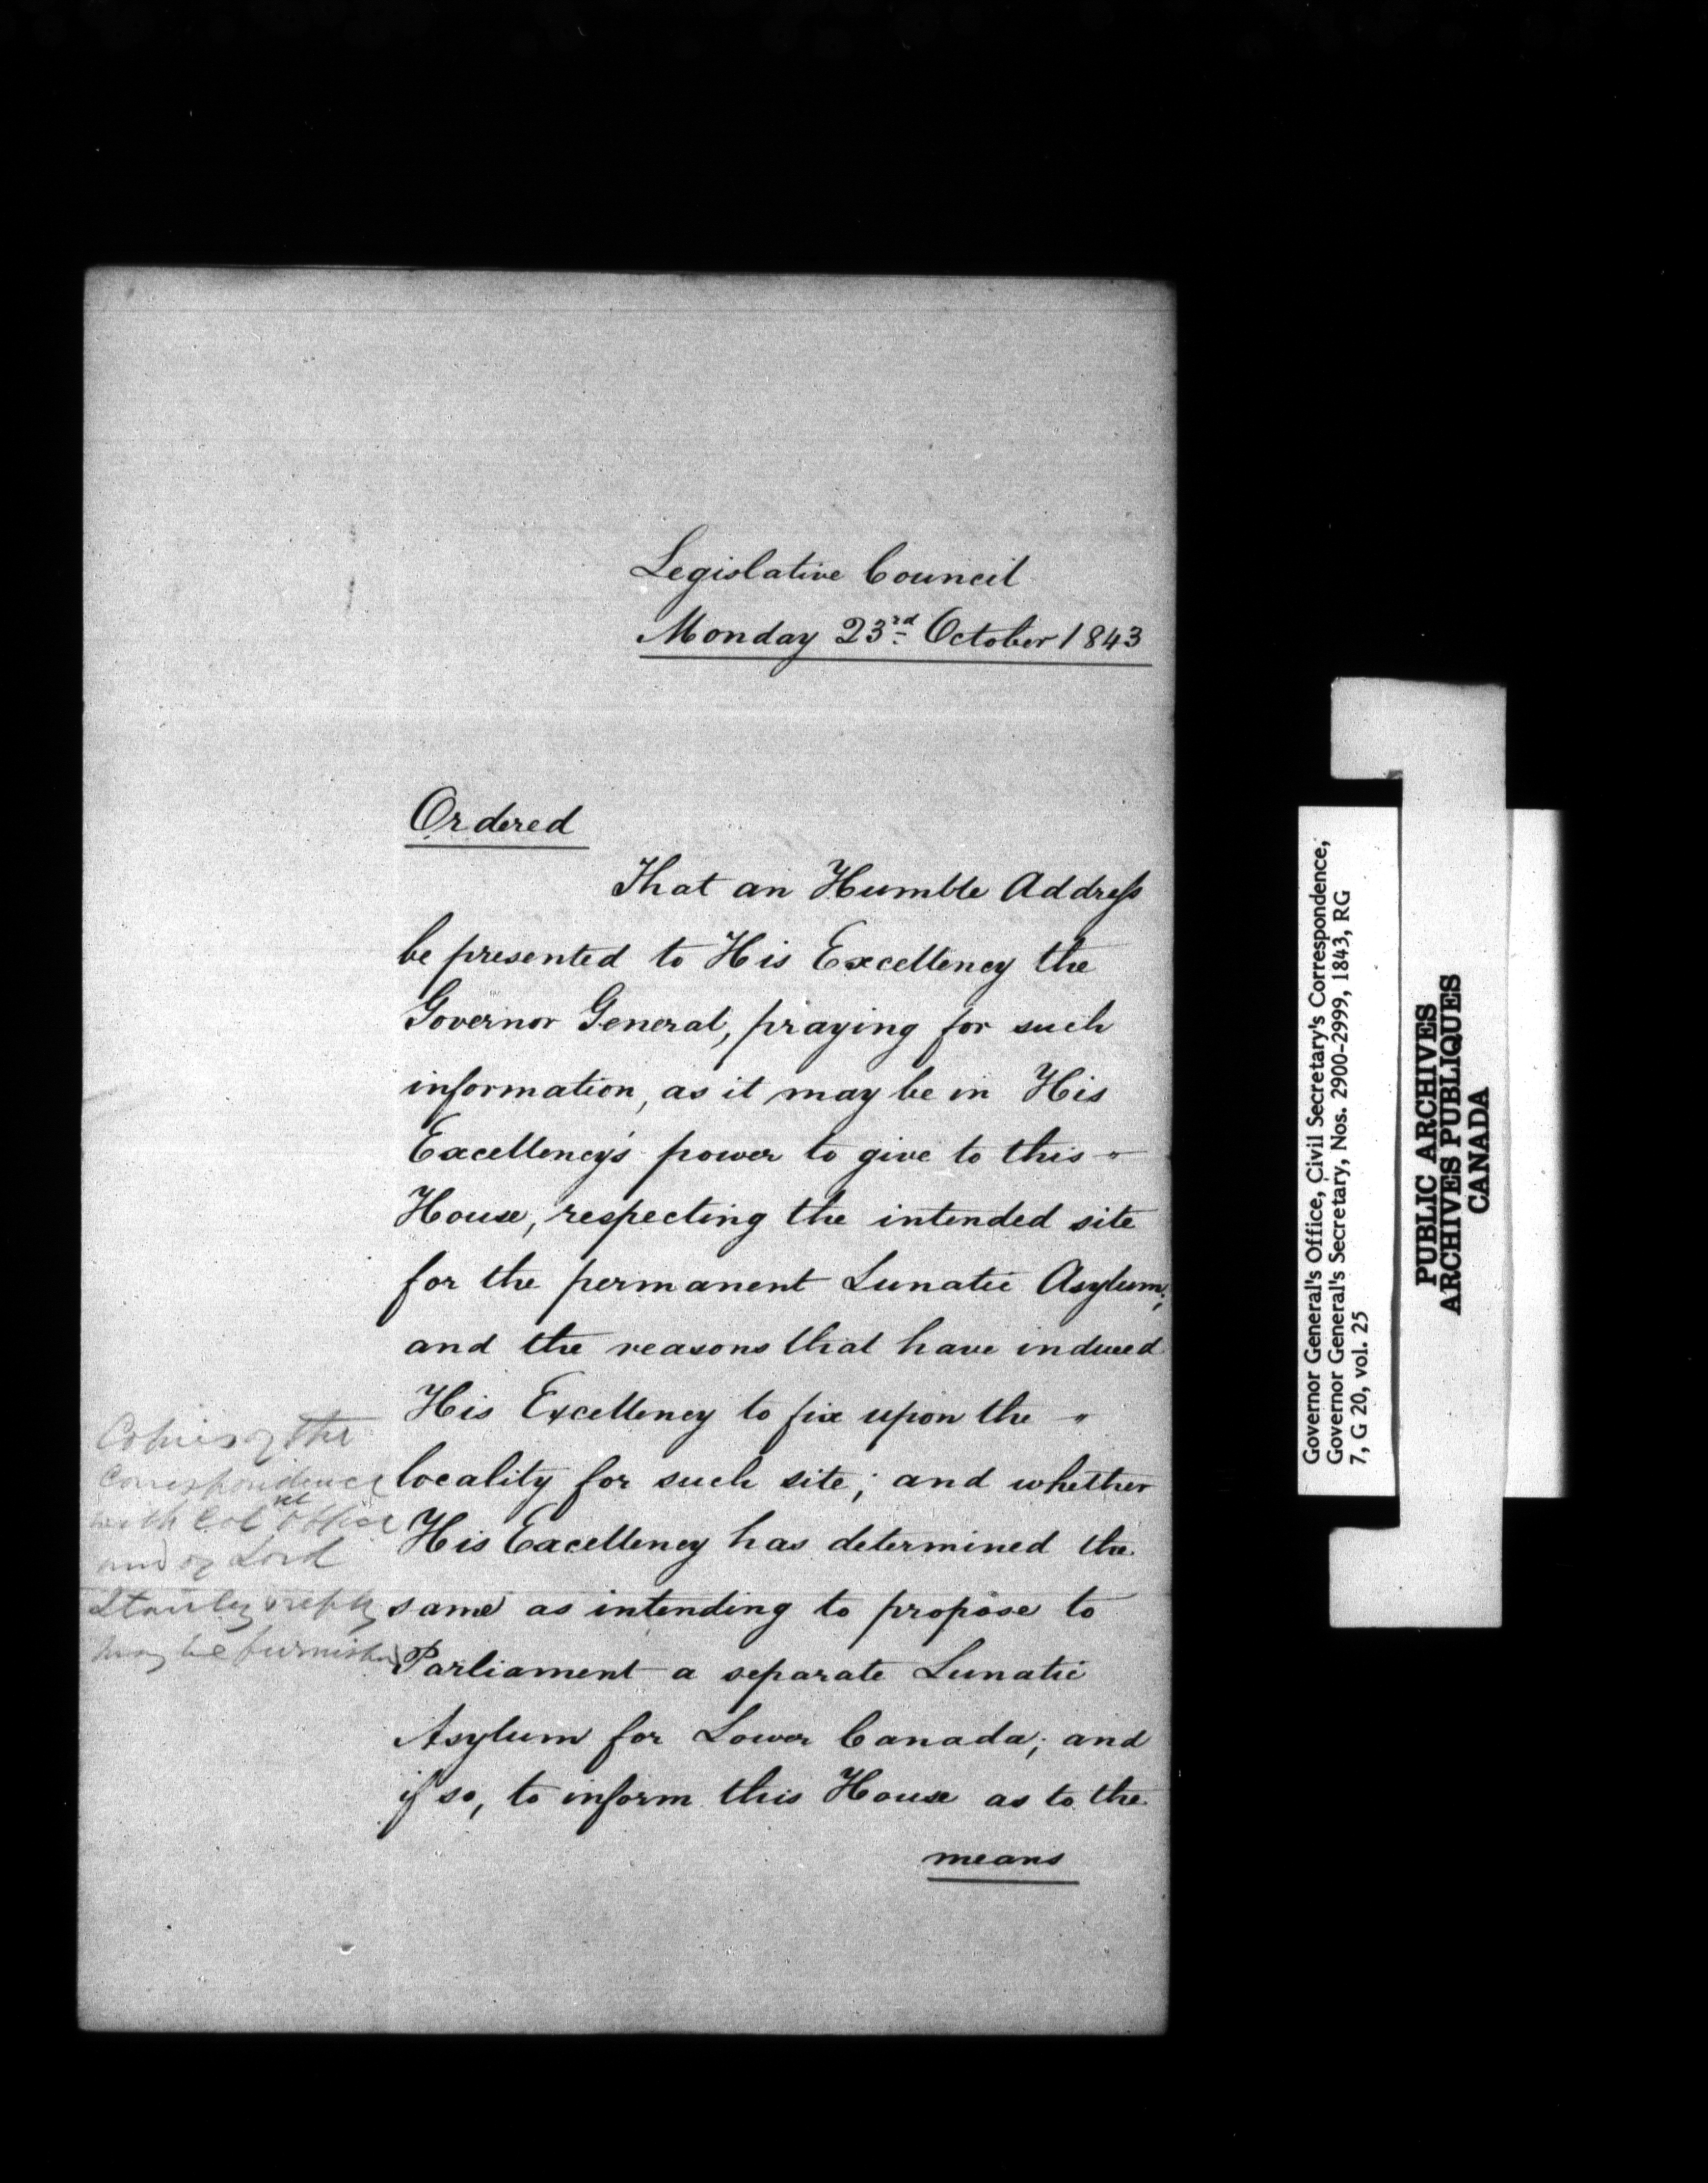 Legislative Council
Monday 23rd October 1843
Ordered
That an Humble Address
be presented to His Excellency the
Governor General, praying for such
information, as it may be in His
Excellency's power to give to this "
House, respecting the intended site
for the permanent Lunatic Asylum;
and the reasons that have induced
His Excellency to fix upon the "
locality for such site; and whether
His Excellency has determined the
same as intending to propose to
Parliament a separate Lunatic
Asylum for Lower Canada; and
if so, to inform this House as to the
means
Copies of the
Correspondence
with Col Office
and of Lord
Stanley's reply
may be furnished
Governor General's Office, Civil Secretary's Correspondence,
Governor General's Secretary, Nos. 2900-2999, 1843, RG
7, G 20, vol. 25
PUBLIC ARCHIVES
ARCHIVES PUBLIQUES
CANADA